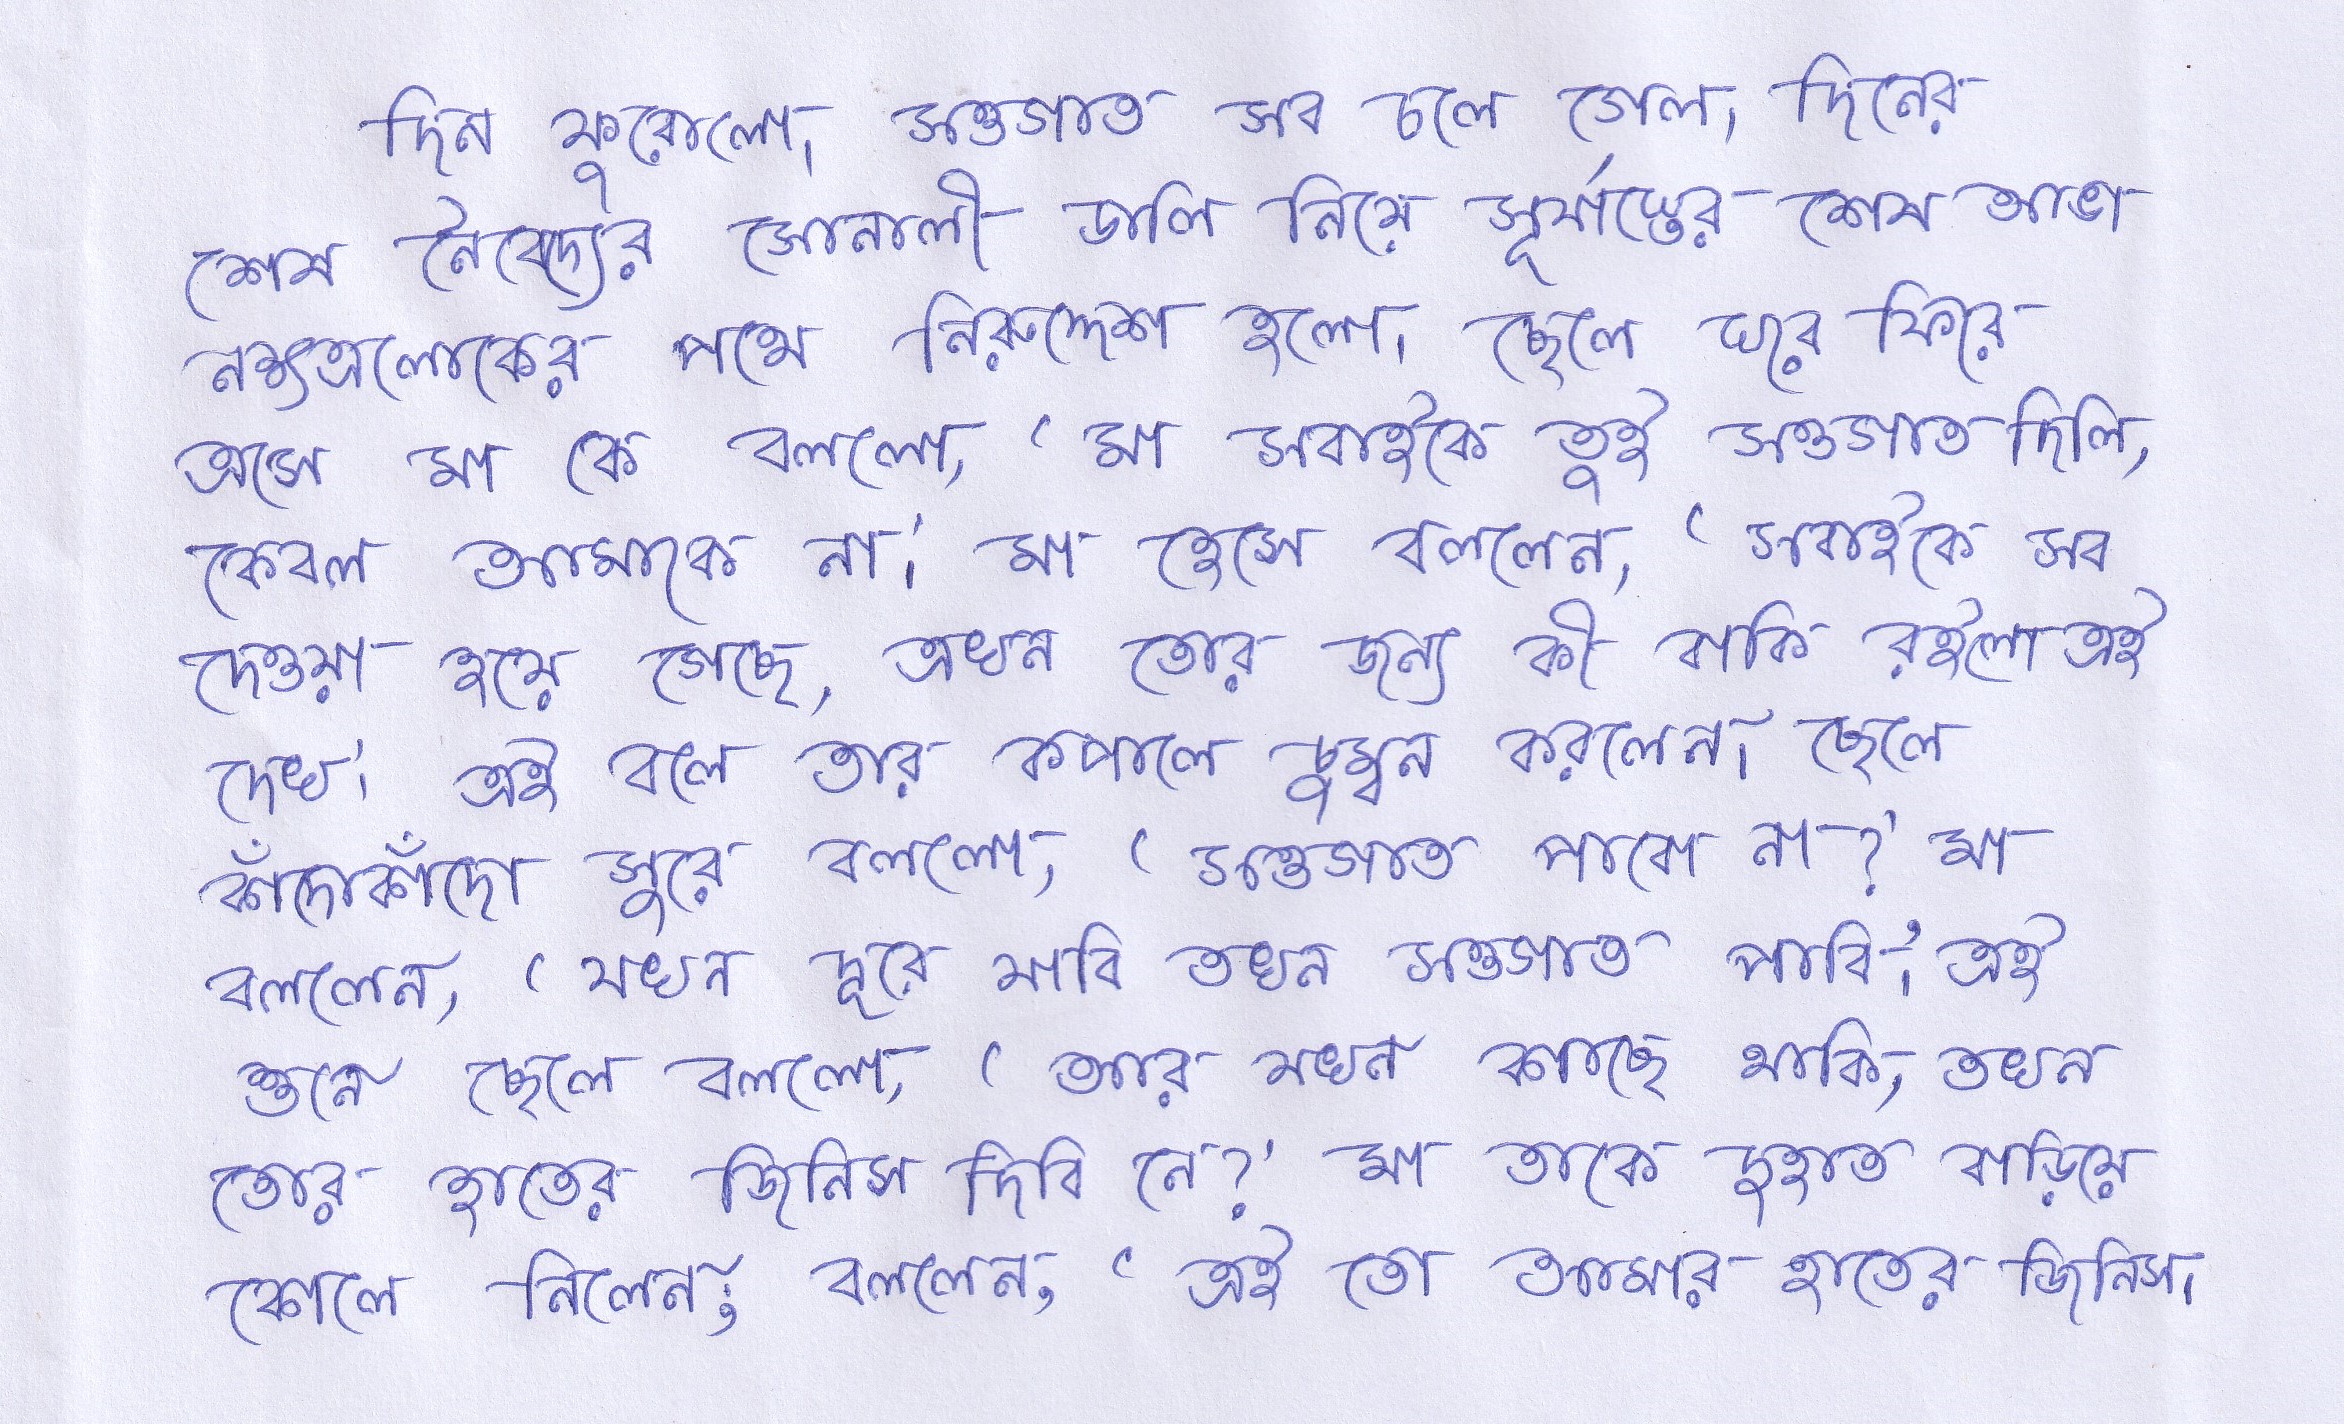 দিন ফুরোলো, সওগাত সব চলে গেল, দিনের
শেষ নৈবেদ্যের সোনালী ডালি নিয়ে সূর্যাস্তের শেষ আভা
নক্ষত্রলোকের পথে নিরুদ্দেশ হলো। ছেলে ঘরে ফিরে
এসে মা কে বললো, ‘মা সবাইকে তুই সওগাত দিলি,
কেবল আমাকে না।’ মা হেসে বললেন, ‘সবাইকে সব
দেওয়া হয়ে গেছে, এখন তোর জন্য কী বাকি রইলো এই
দেখ।’ এই বলে তার কপালে চুম্বন করলেন। ছেলে
কাঁদোকাঁদো সুরে বললো, ‘সওগাত পাবো না?’ মা
বললেন, ‘যখন দূরে যাবি তখন সওগাত পাবি।’ এই
শুনে ছেলে বললো, ‘আর যখন কাছে থাকি, তখন
তোর হাতের জিনিস দিবি নে?’ মা তাকে দুহাত বাড়িয়ে
কোলে নিলেন; বললেন, ‘এই তো আমার হাতের জিনিস।